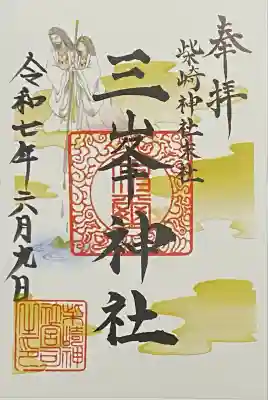 奉拝
柴崎神社末社
三峯神社
令和七年六月九日
柴崎神
社宮司
之印